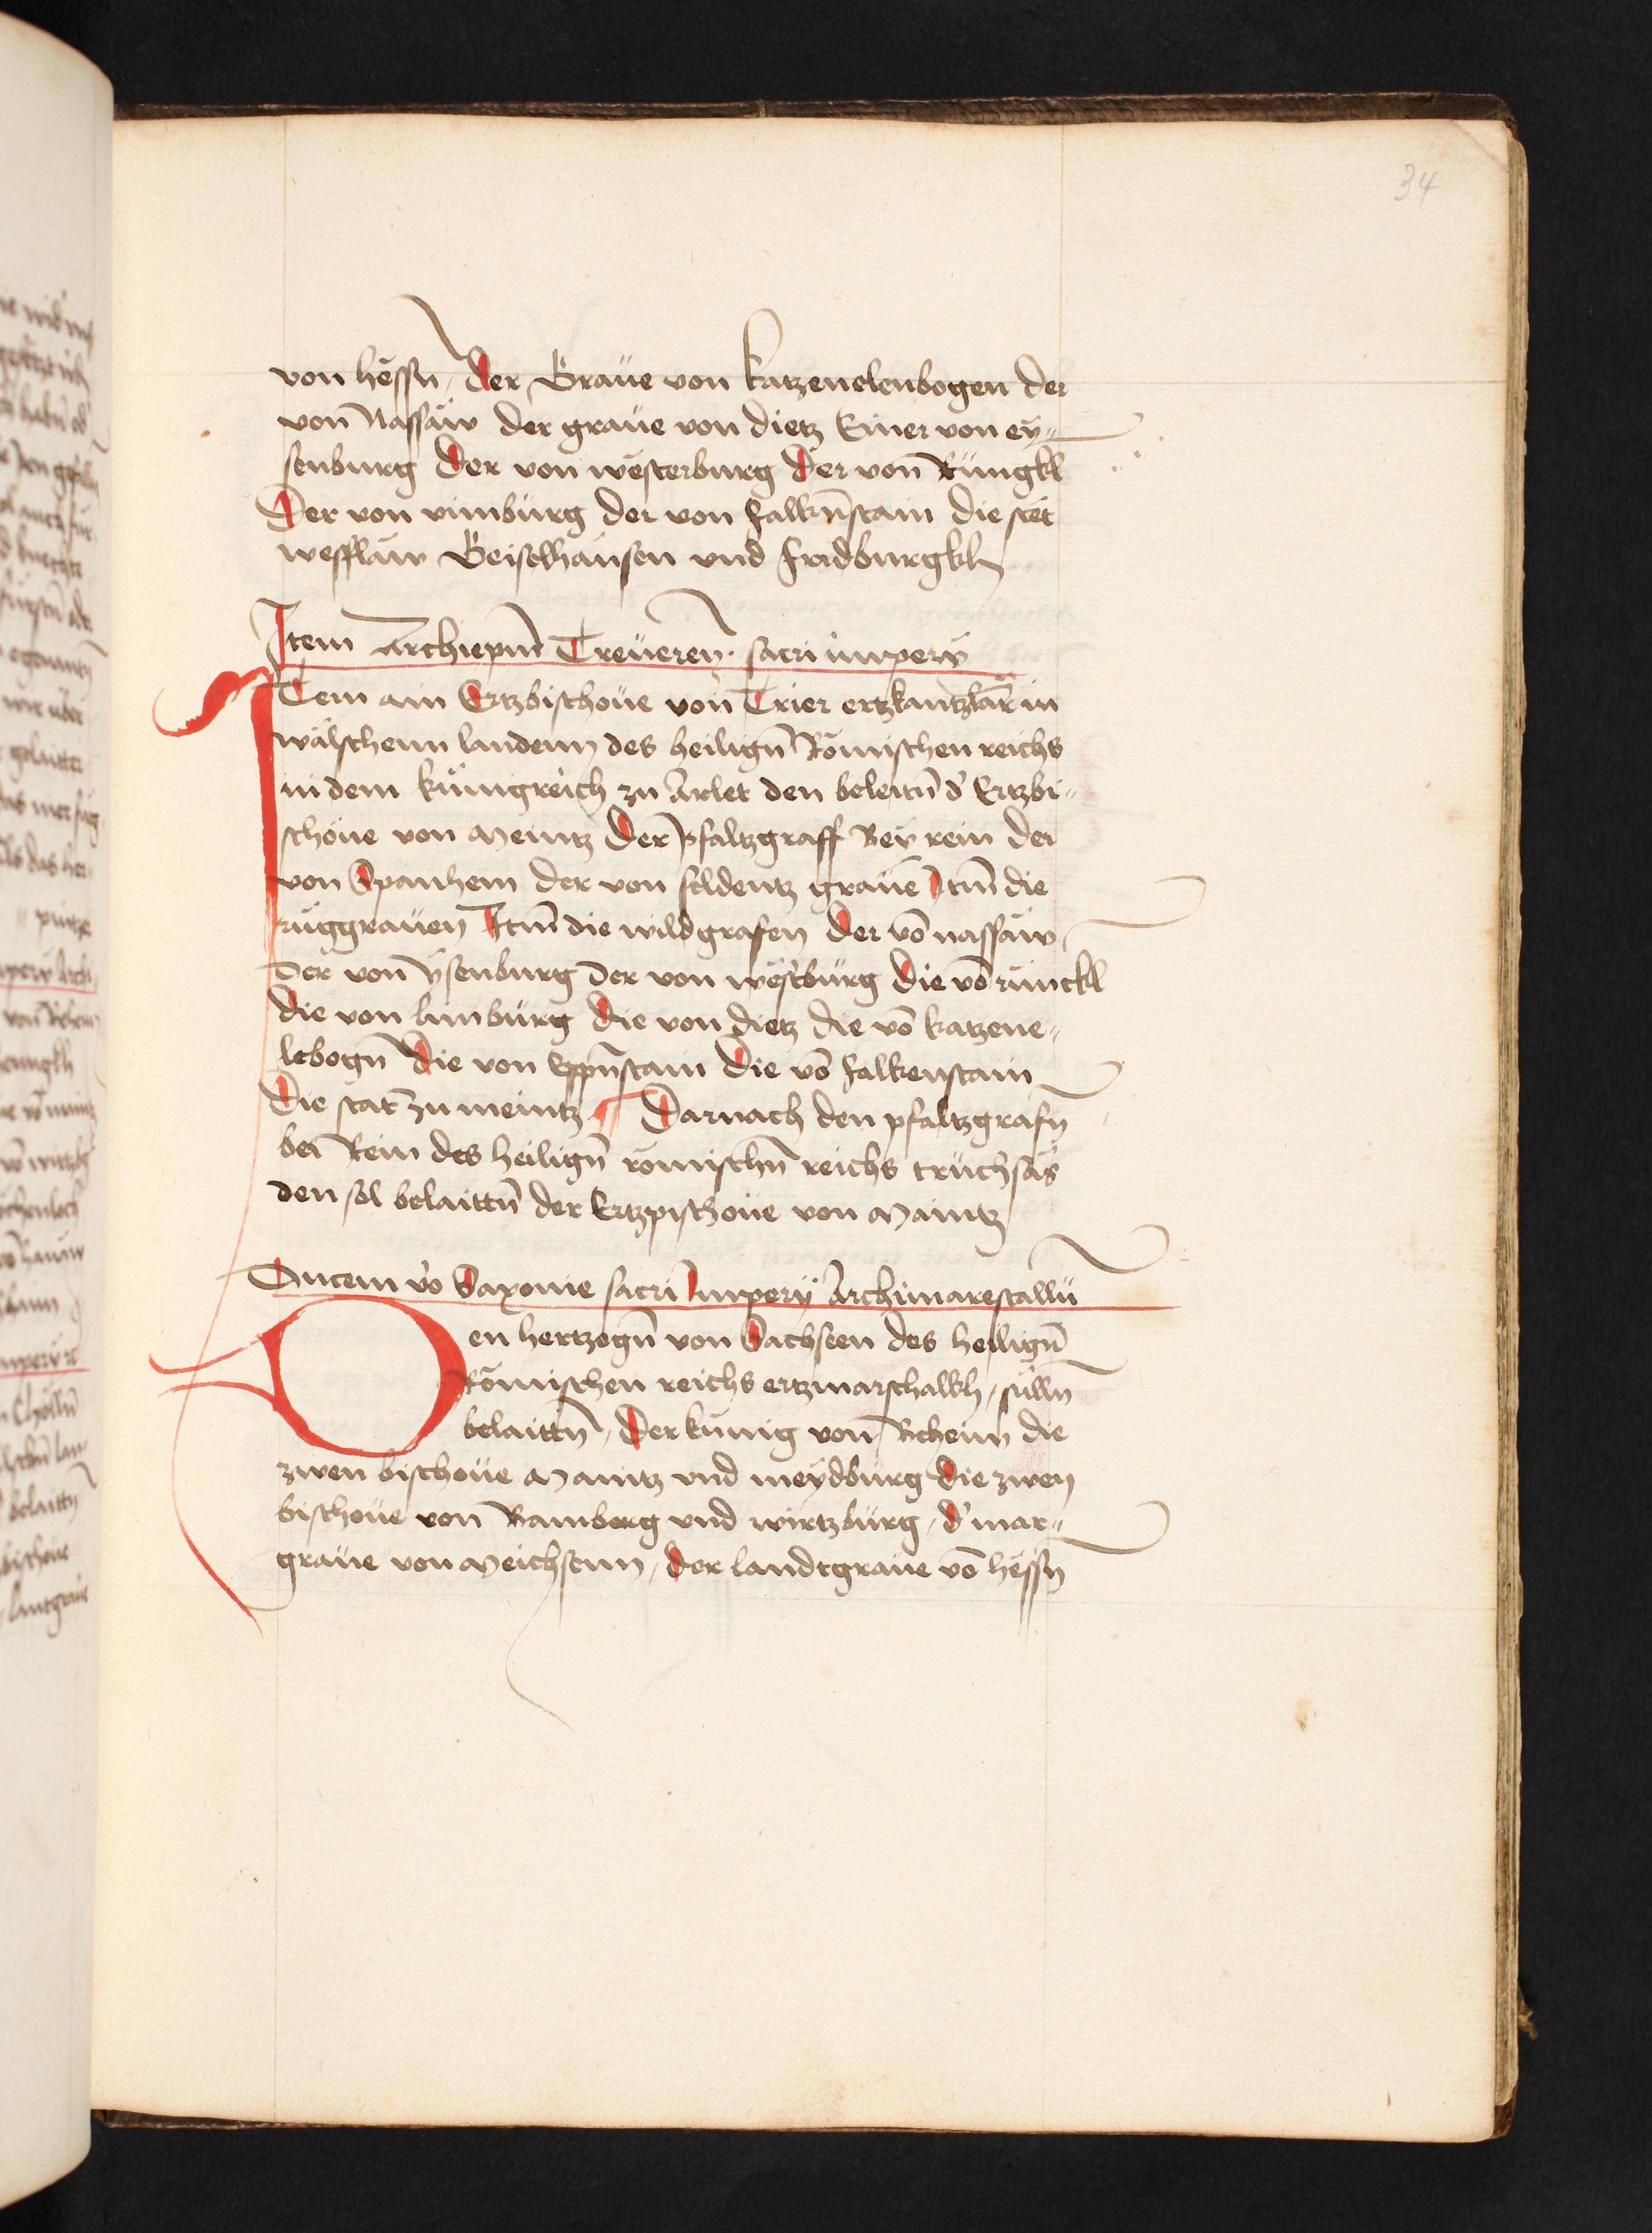 34
von hessn / der Graue von katzenelenbogen der
von Nassaw der graue von dietz Einer von ey„
senburg der von westerburg der von Rungkl
Der von limburg der von falkn̄stain die stet
wefflaw Geiselhausen vnd fridburgkh
Item Archiep̄m Treueren. sacri impery
ITem ain Ertzbischoue von Trier ertzkantzlar in
wälschenn landenn des heilign̄ Römischen reichs
in dem künigreich zu Arlet den beleitn̄ d' Ertzbi„
schoue von Meintz Der pfaltzgraff Bey rein der
von Spanhem der von feldentz graue Itm̄ die
ruggrauen Itm̄ die wildgrafen der vō nassaw
der von ysenburg der von westburg die vō runckl
die von limburg die von dietz die vō katzene„
lebogn̄ die von Eppn̄stain die vō falkenstain
die stat zu meintz ¶ Darnach den pfaltzgrafn
bei Rein des heilign̄ römischn̄ reichs truchsäs
den sol belaittn̄ der Ertzpischoue von Maintz
Ducem v'o Saxonie sacri Impery Archimarescallū
Den hertzogn̄ von Sachsen des heilign̄
Römischen reichs ertzmarschalkh / sülln
belaittn / Der künig von Beheim die
zwen bischoue Maintz vnd meydburg die zwen
bischoue von Bamberg vnd wirtzburg / d' mar„
graue von Meichsenn / der landtgraue vō hessn